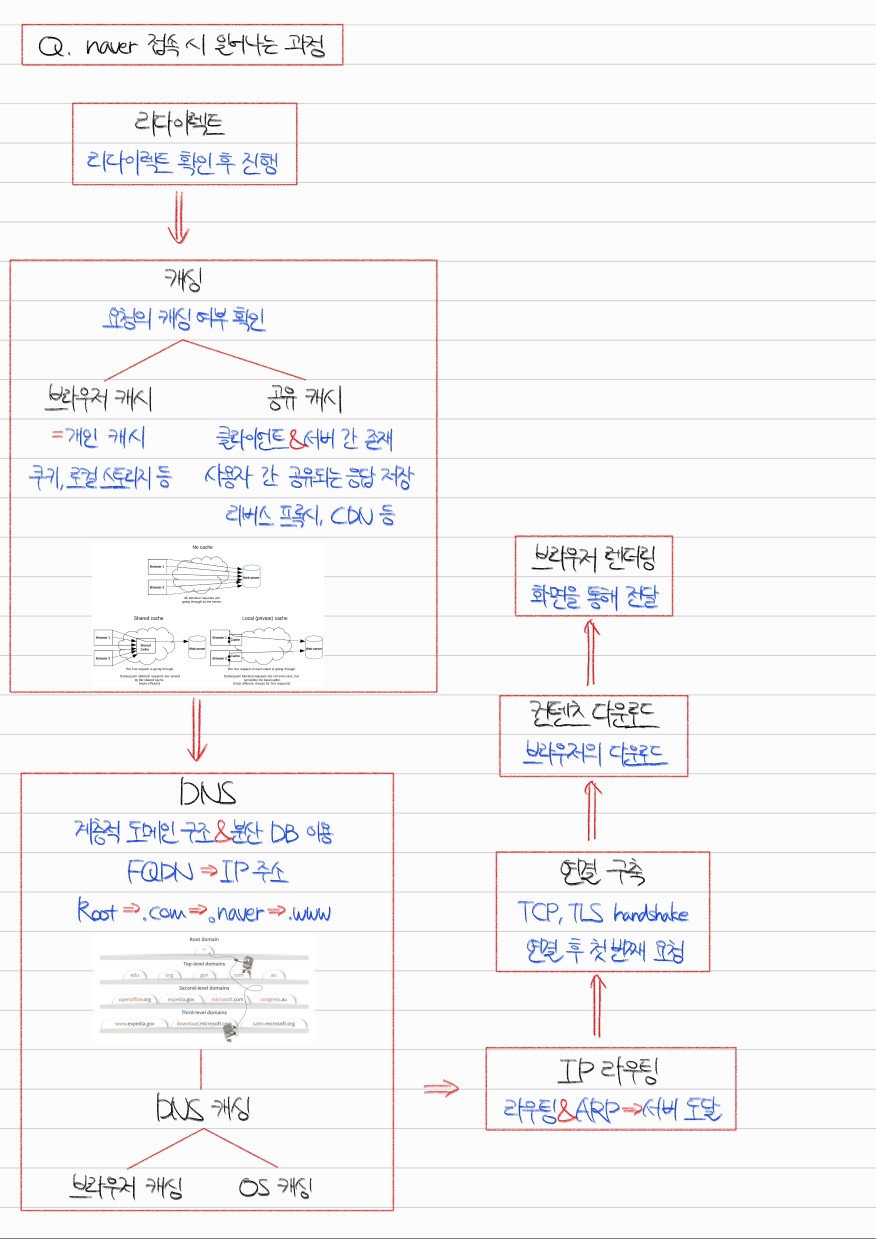 Q. naver 접속 시 일어나는 과정
리다이렉트
리다이렉트 확인 후 진행
캐싱
요청의 캐싱 여부 확인
브라우저 캐시
= 개인 캐시
쿠키, 로컬 스토리지 등
공유 캐시
클라이언트&서버 간 존재
사용자 간 공유되는 응답 저장
리버스 프록시, CDN 등
No cache
Browser 1
Browser 2
Web server
All identical requests are
going through to the server.
Shared cache
Browser 1
Browser 2
Shared
Cache
Web server
The first request is going through.
Subsequent identical requests are served
by the shared cache
(more efficient)
Local (private) cache
Browser 1
Cache
Cache
Web server
The first request of each client is going through
DNS
계층적 도메인 구조&분산 DB 이용
FQDN ⇒ IP 주소
Root ⇒ .com ⇒ .naver ⇒ .www
Root domain
Top-level domains
edu org gov com au
Second-level domains
openoffice.org expedia.gov microsoft.com congress.au
Third-level domains
www.expedia.gov download.microsoft.com sales.microsoft.org
DNS 캐싱
브라우저 캐싱
OS 캐싱
IP 라우팅
라우팅&ARP ⇒ 서버 도달
연결 구축
TCP, TLS handshake
연결 후 첫 번째 요청
컨텐츠 다운로드
브라우저의 다운로드
브라우저 렌더링
화면을 통해 전달